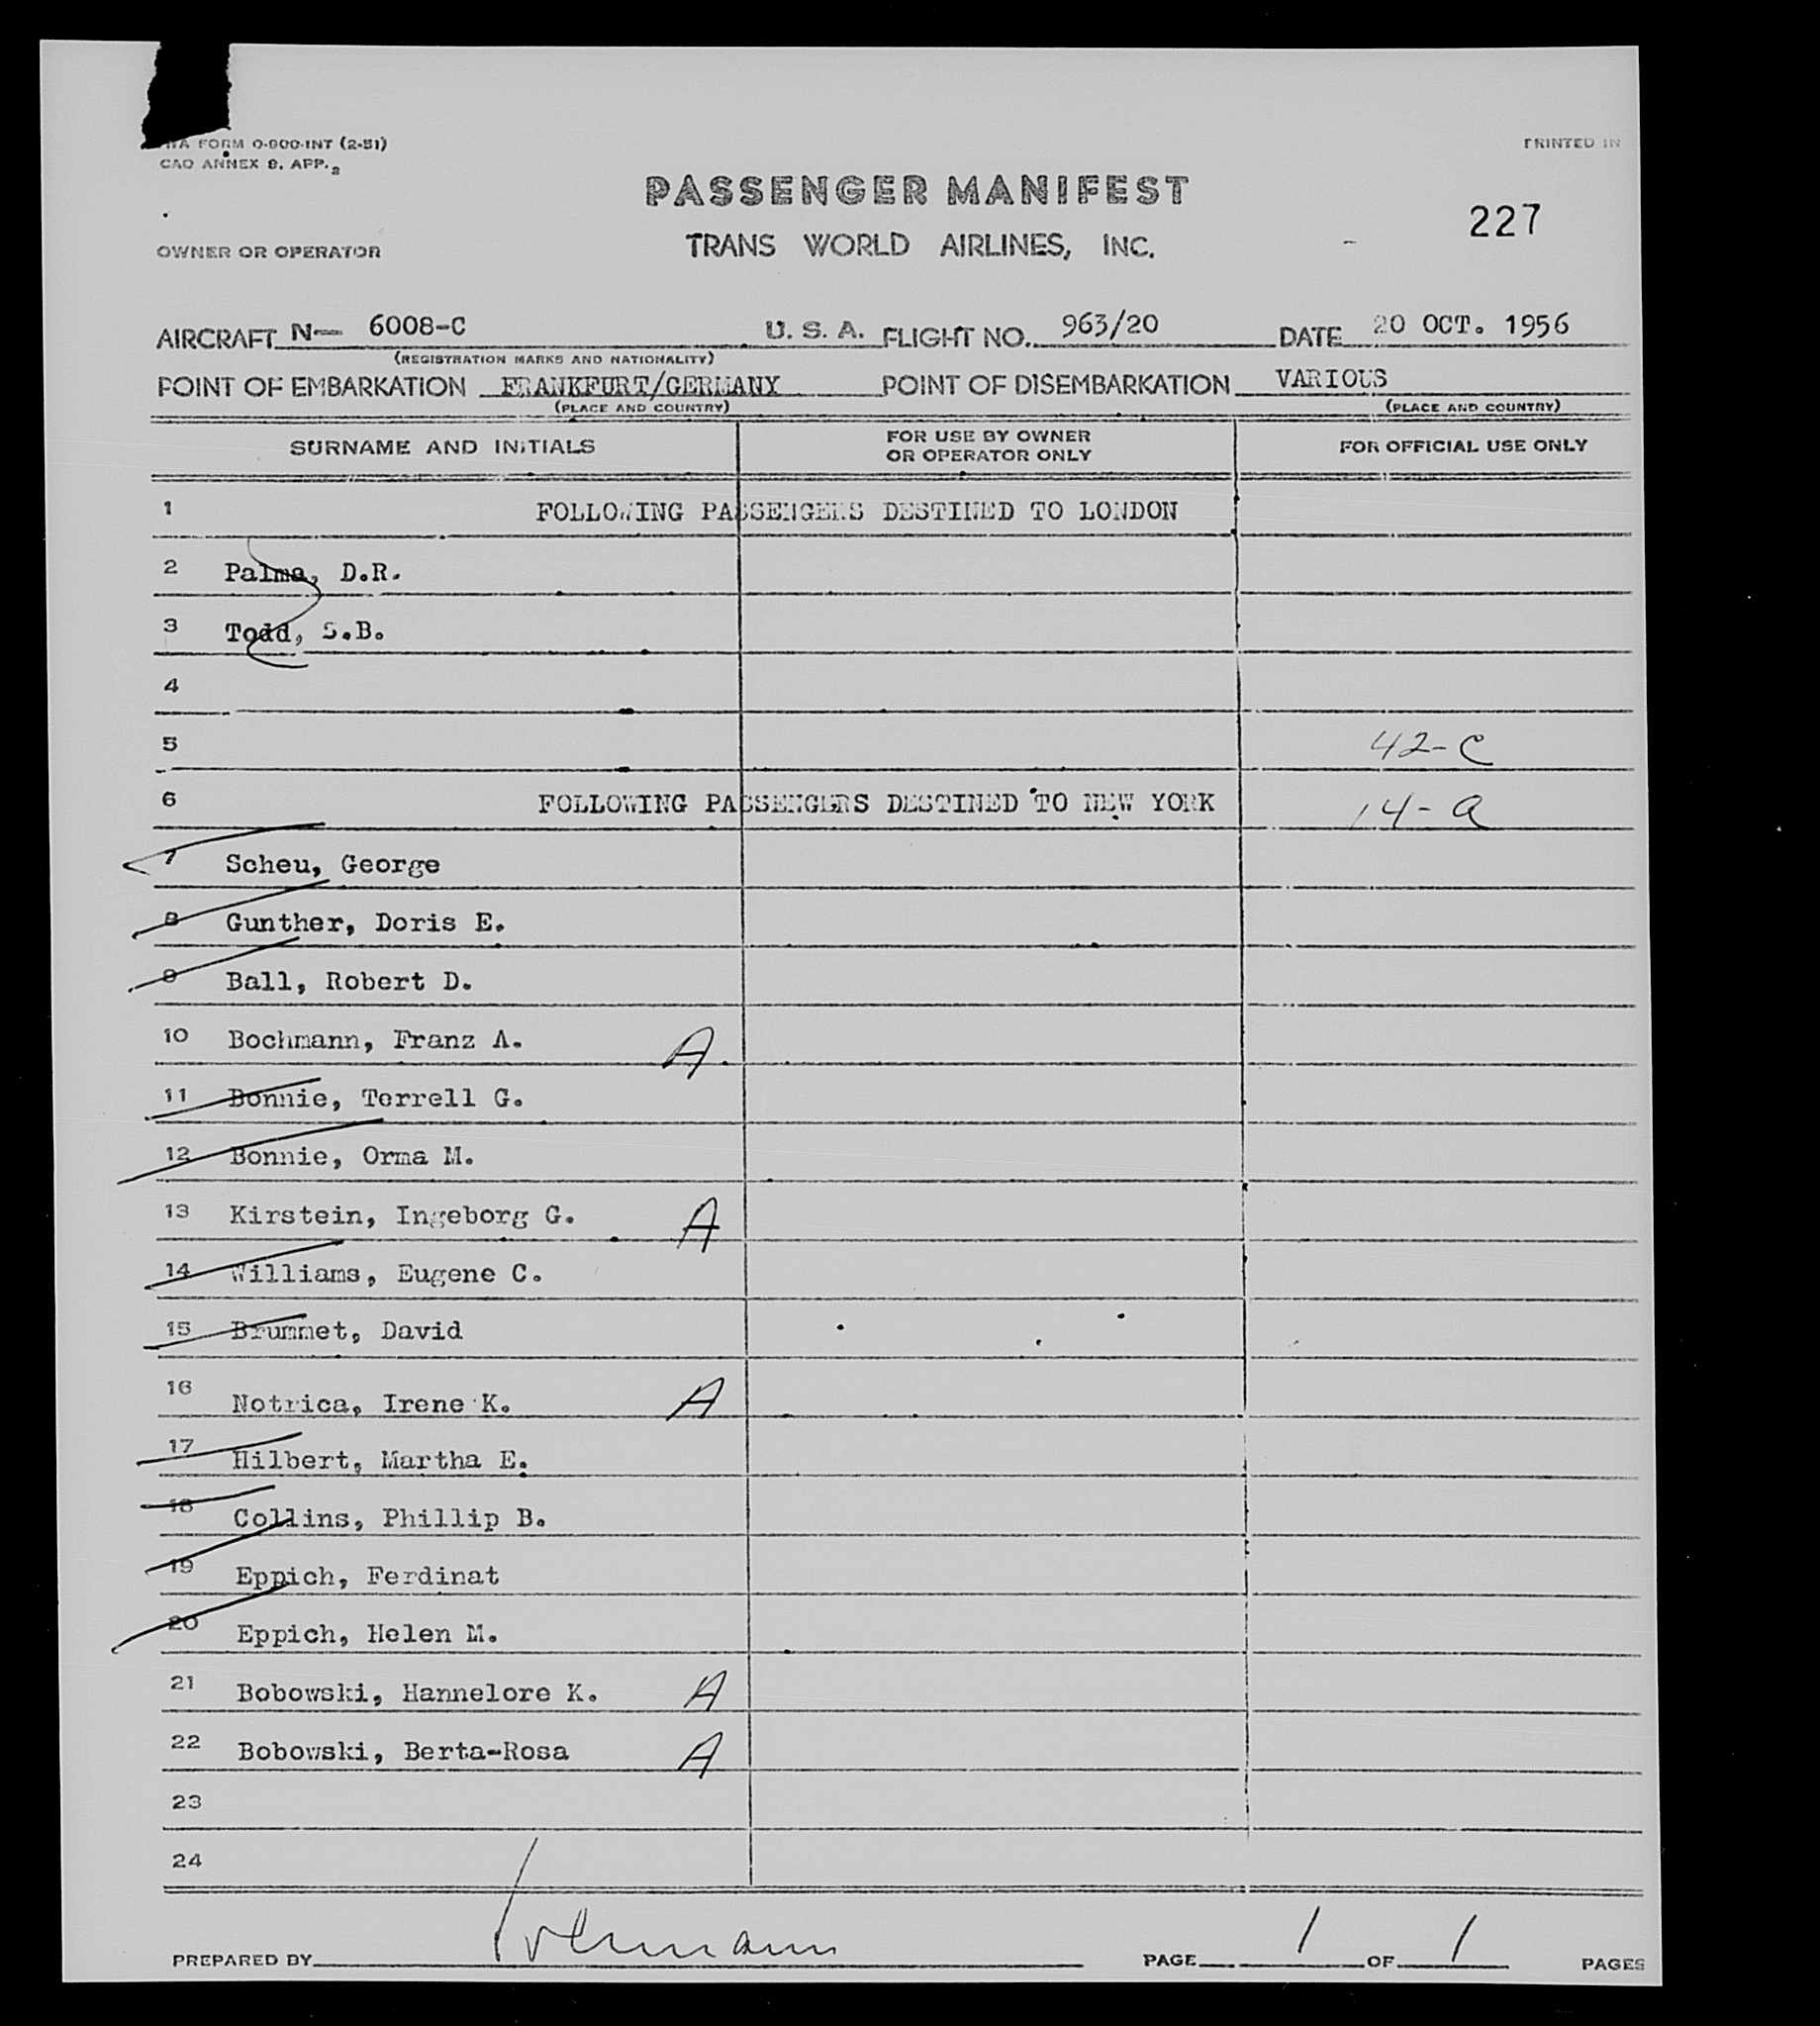 FORM 0-900-INT (2-51)
CAO ANNEX 9, APP. 2
PRINTED IN
PASSENGER MANIFEST
227
OWNER OR OPERATOR
TRANS WORLD AIRLINES, INC.
AIRCRAFT N— 6008-C U. S. A. FLIGHT NO. 963/20 DATE 20 OCT. 1956
(REGISTRATION MARKS AND NATIONALITY)
POINT OF EMBARKATION FRANKFURT/GERMANY POINT OF DISEMBARKATION VARIOUS
(PLACE AND COUNTRY) (PLACE AND COUNTRY)
SURNAME AND INITIALS FOR USE BY OWNER OR OPERATOR ONLY FOR OFFICIAL USE ONLY
1 FOLLOWING PASSENGERS DESTINED TO LONDON
2 Palma, D.R.
3 Todd, S.B.
4
5 42-C
6 FOLLOWING PASSENGERS DESTINED TO NEW YORK 14-a
7 Scheu, George
8 Gunther, Doris E.
9 Ball, Robert D.
10 Bochmann, Franz A. A
11 Bonnie, Terrell G.
12 Bonnie, Orma M.
13 Kirstein, Ingeborg G. A
14 Williams, Eugene C.
15 Brummet, David
16 Notrica, Irene K. A
17 Hilbert, Martha E.
18 Collins, Phillip B.
19 Eppich, Ferdinat
20 Eppich, Helen M.
21 Bobowski, Hannelore K. A
22 Bobowski, Berta-Rosa A
23
24
PREPARED BY PAGE 1 OF 1 PAGES